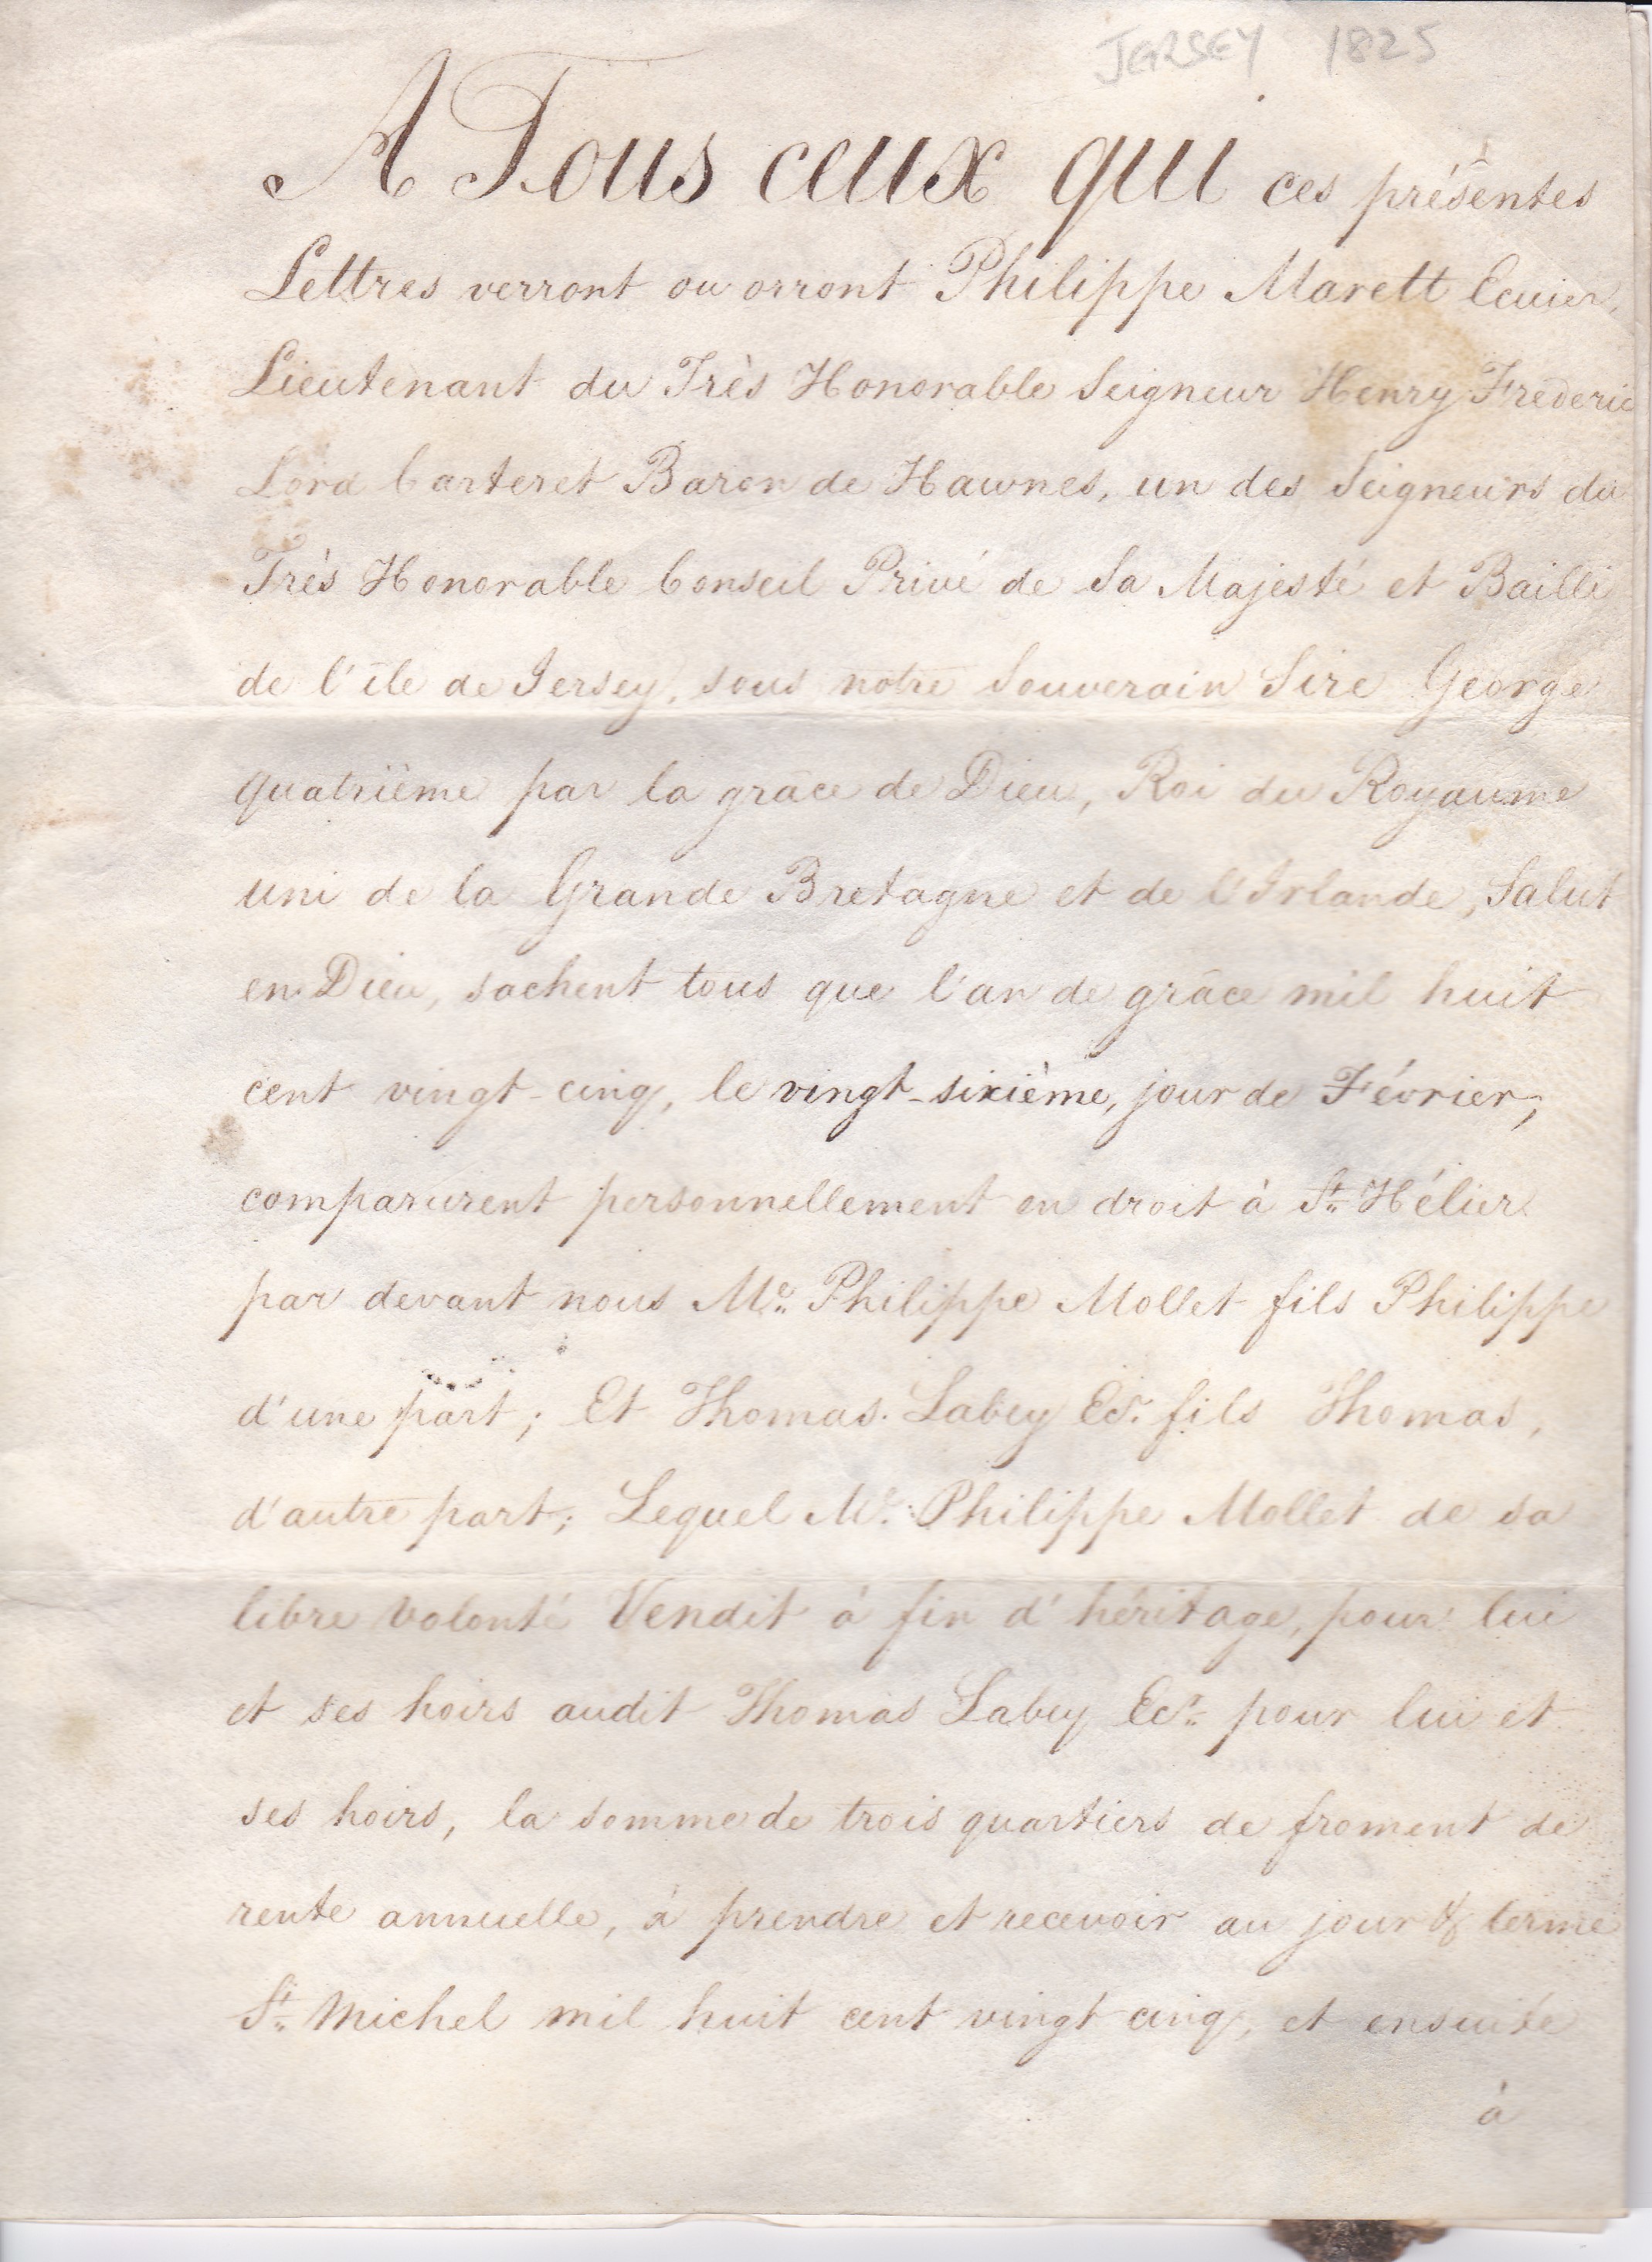 JERSEY 1825
A Tous ceux qui ces présentes
Lettres verront ou orront Philippe Marett Ecuier,
Lieutenant du Très Honorable Seigneur Henry Frederic
Lord Carteret Baron de Hawnes, un des Seigneurs du
Très Honorable Conseil Privé de Sa Majesté et Bailli
de l'île de Jersey, sous notre Souverain Sire George
quatrième par la grâce de Dieu, Roi du Royaume
uni de la Grande Bretagne et de l'Irlande, Salut
en Dieu, sachent tous que l'an de grâce mil huit
cent vingt-cinq, le vingt-sixième, jour de Février,
comparurent personnellement en droit à St. Hélier
par devant nous Mr. Philippe Mollet fils Philippe
d'une part; Et Thomas Labey Ecr. fils Thomas,
d'autre part; Lequel Mr. Philippe Mollet de sa
libre volonté Vendit à fin d'héritage, pour lui
et ses hoirs audit Thomas Labey Ecr. pour lui et
ses hoirs, la somme de trois quartiers de froment de
rente annuelle, à prendre et recevoir au jour & terme
St. Michel mil huit cent vingt cinq, et ensuite
à